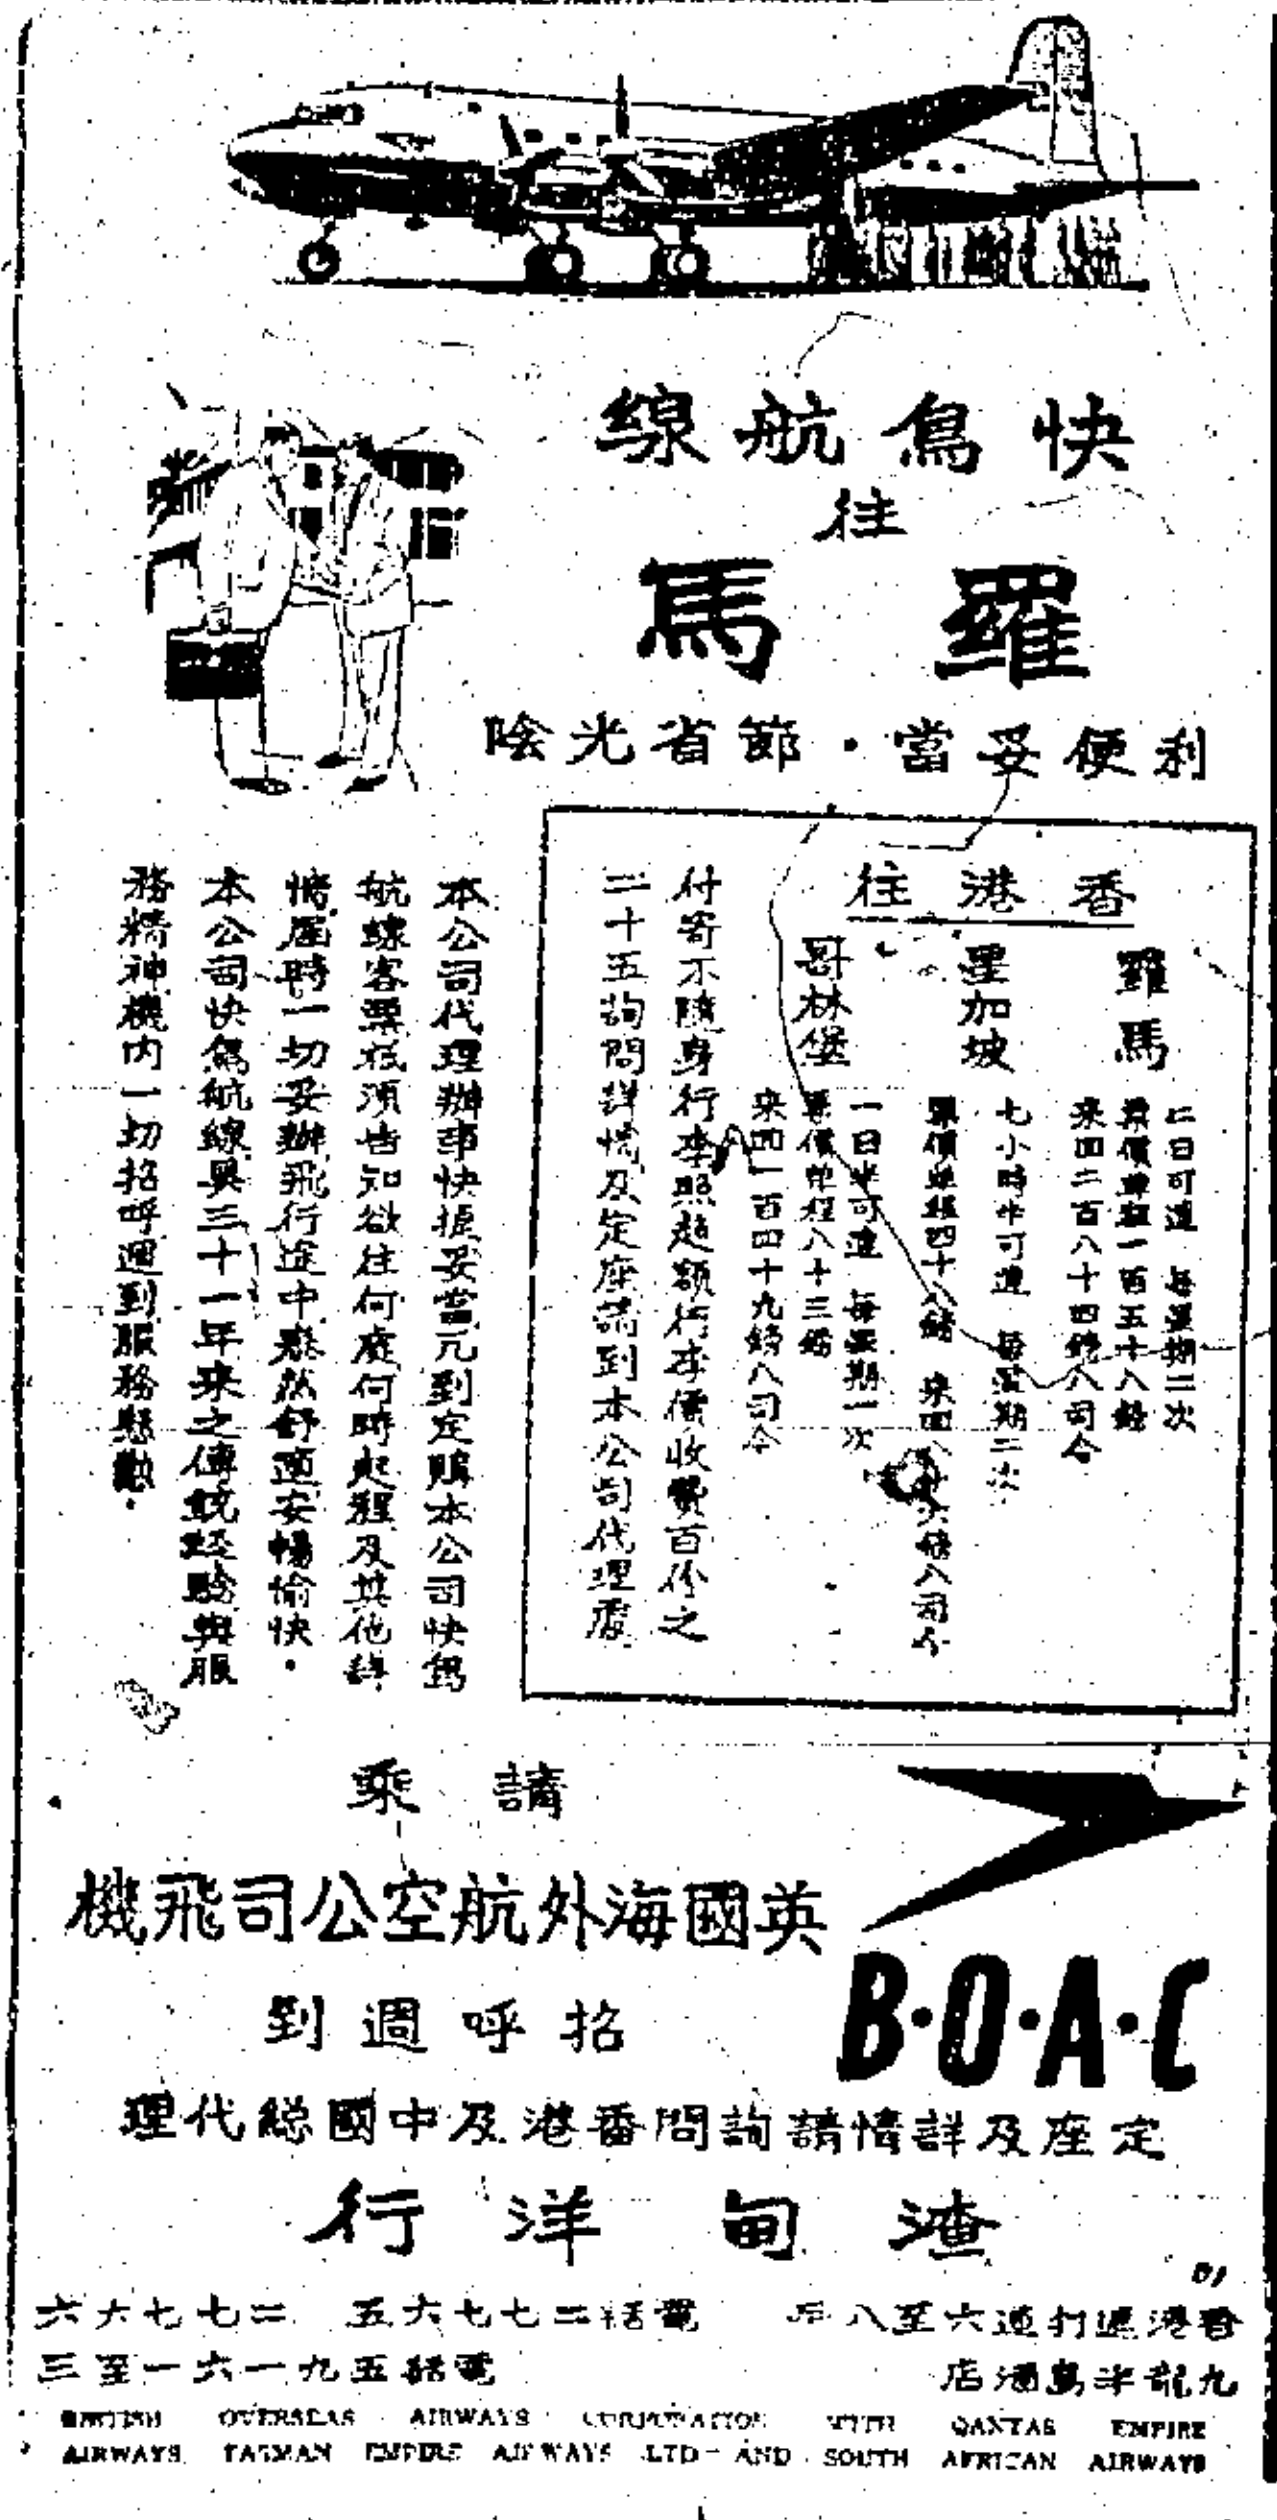 快鳥航線
往
羅馬
利便妥當·節省光陰
香港往
羅馬
二日可達 每星期二次
票價單程一百五十八鎊
來回二百八十四鎊八司令
星加坡
七小時半可達 每星期二次
票價單程四十八鎊 來回八十六鎊八司令
哥林堡
一日半可達 每星期一次
票價單程八十三鎊
來回一百四十九鎊八司令
付寄不隨身行李照超額行李價收費百份之
二十五詢問詳情及定座請到本公司代理處
本公司代理辦事快捷妥當凡到定購本公司快鳥
航線客票祇須告知欲往何處何時起程及其他詳
情屆時一切妥辦飛行途中舒適安暢愉快·
本公司快鳥航線具三十一年來之傳統經驗與服
務精神機內一切招呼週到服務慇懃·
請乘
英國海外航空公司飛機
招呼週到
B·O·A·C
定座及詳情請詢問香港及中國總代理
渣甸洋行
香港遮打道六至八号 電話二七七六五 二七七六六
九龍半島酒店 電話五九一六一至三
BRITISH OVERSEAS AIRWAYS CORPORATION WITH QANTAS EMPIRE
AIRWAYS TASMAN EMPIRE AIRWAYS LTD AND SOUTH AFRICAN AIRWAYS